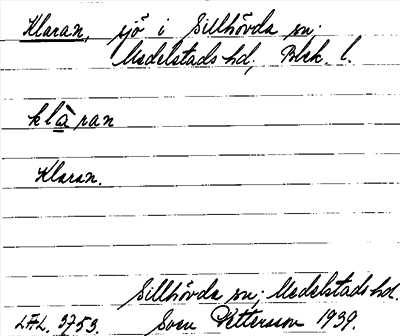 Klaran, sjö i Sillhövda sn.
Medelstads hd, Blek. l.
klàran
Klaran.
Sillhövda sn, Medelstads hd.
LAL. 3753. Sven Pettersson 1939.